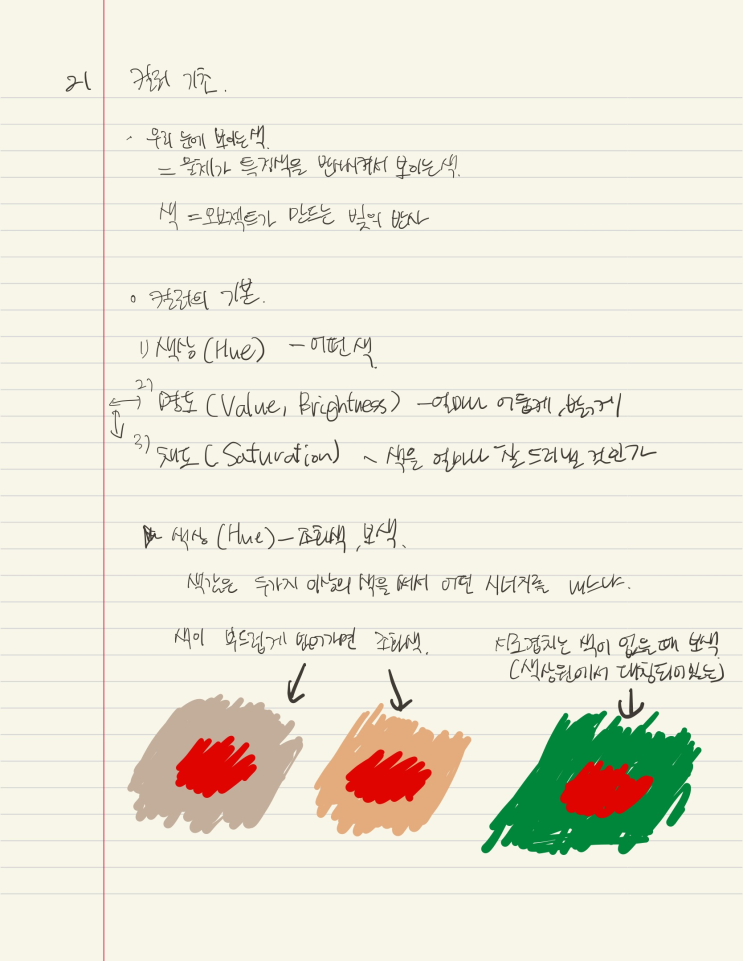 21 컬러 기초.
- 우리 눈에 보이는 색.
= 물체가 특정색을 반사시켜서 보이는 색.
색 = 오브젝트가 만드는 빛의 반사
• 컬러의 기본.
1) 색상 (Hue) - 어떤 색.
2) 명도 (Value, Brightness) - 얼마나 어둡게, 밝게
3) 채도 (Saturation) ~ 색을 얼마나 잘 드러낼 것인가
색상 (Hue) - 조화색, 보색.
색감은 두가지 이상의 색을 써서 어떤 시너지를 내느냐.
색이 부드럽게 넘어가면 조화색.
서로 겹치는 색이 없을 때 보색
(색상원에서 대칭되어있는)